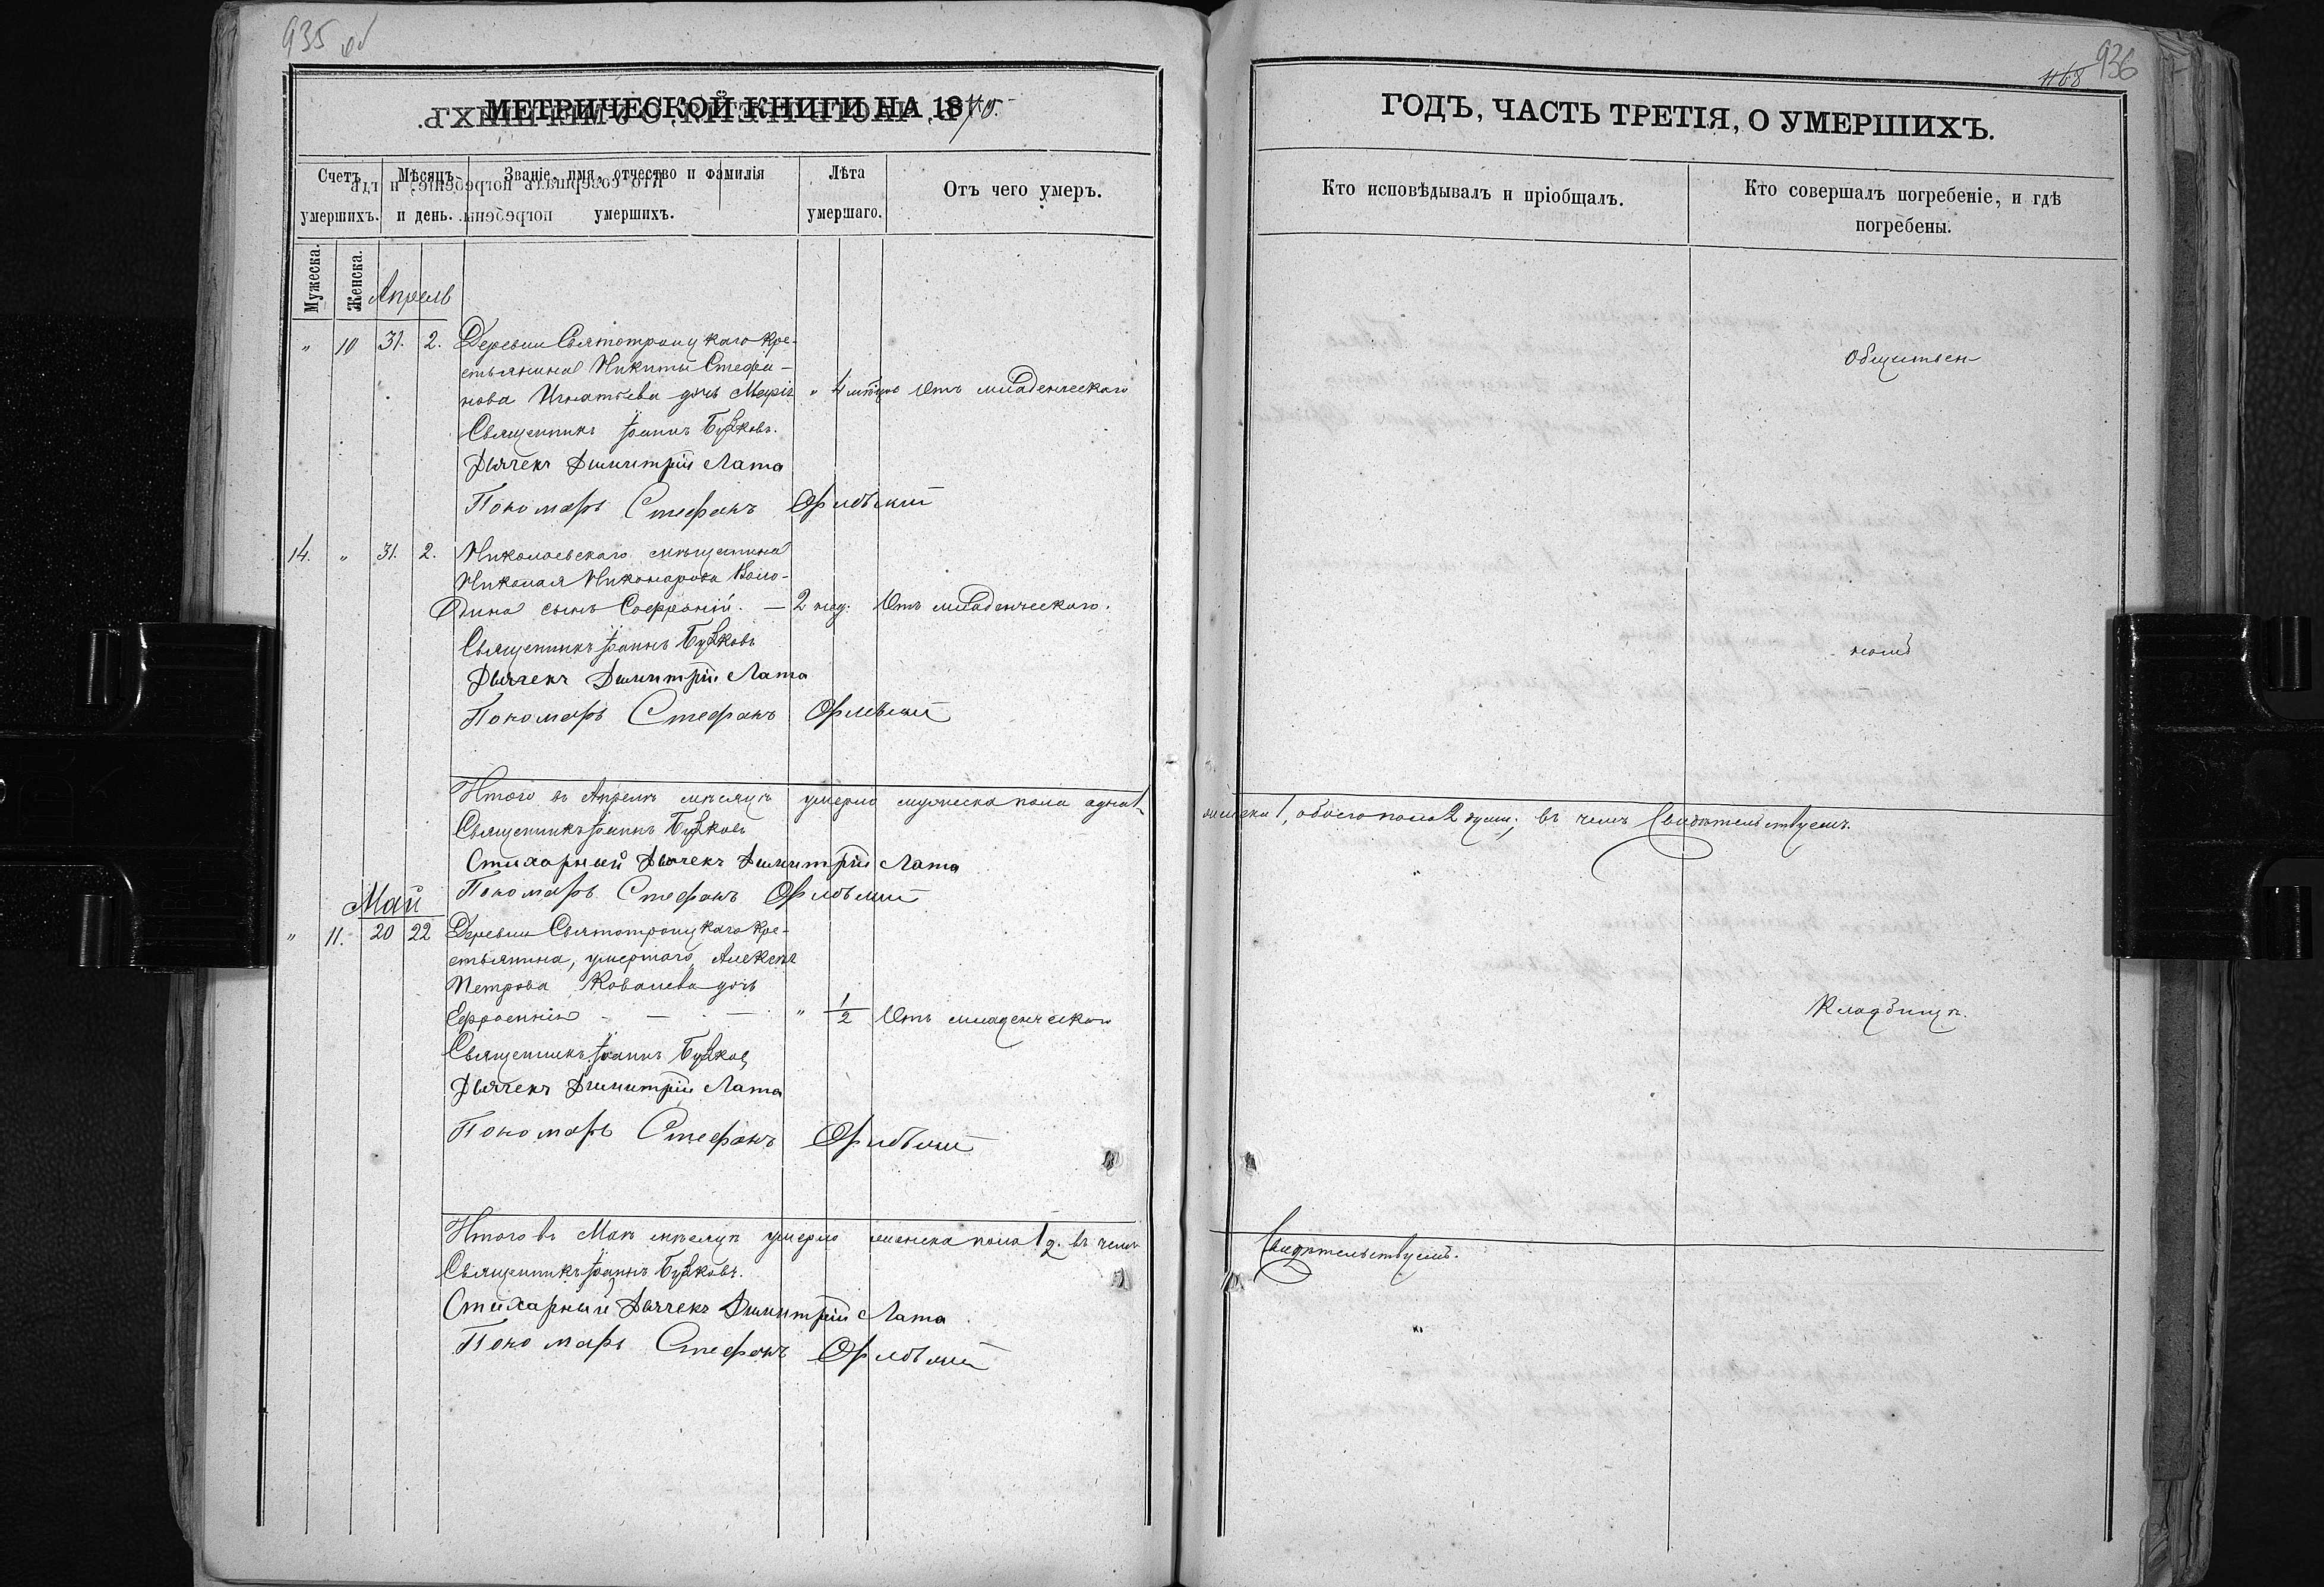 935 об
936
1168
МЕТРИЧЕСКОЙ КНИГИ НА 1870.
ГОДЪ, ЧАСТЬ ТРЕТІЯ, О УМЕРШИХЪ.
Счетъ умершихъ.
Мужеска.
Женска.
Мѣсяцъ и день.
Званіе, имя, отчество и фамилія умершихъ.
Лѣта умершаго.
Отъ чего умеръ.
Кто исповѣдывалъ и пріобщалъ.
Кто совершалъ погребеніе, и гдѣ погребены.
Апрель
" 10 31. 2. Деревни Святотроицкаго кре-
стьянина Никиты Стефа-
нова Игнатьева дочь Марія " 4 мѣсяц Отъ младенческаго
Обществен-
Священникъ Іоаннъ Бужковъ.
Дьячекъ Димитрій Лата
Пономарь Стефанъ
14. " 31. 2. Николаевскаго мѣщанина
Николая Никонарова
сынъ Софроній. — 2 нед. Отъ младенческаго.
Священникъ Іоаннъ Бужковъ
номъ
Дьячекъ Димитрій Лата
Пономарь Стефанъ
Итого въ Апрелѣ мѣсяцѣ умерло мужеска пола одна 1,
женска 1, обоего пола 2 души; въ чемъ Свидѣтельствуемъ.
Священникъ Іоаннъ Бужковъ
Стихарный Дьячекъ Димитрій Лата
Пономарь Стефанъ
Май
" 11. 20 22 Деревни Святотроицкаго кре-
стьянина, умершаго Алексѣя
Петрова Ковалева дочь
Ефросинія - — - — " 1/2 Отъ младенческаго
Кладбищѣ.
Священникъ Іоаннъ Бужковъ
Дьячекъ Димитрій Лата
Пономарь Стефанъ
Итого въ Маѣ мѣсяцѣ умерло женска пола 1 д. въ чемъ
Свидѣтельствуемъ.
Священникъ Іоаннъ Бужковъ.
Стихарный Дьячекъ Димитрій Лата
Пономарь Стефанъ